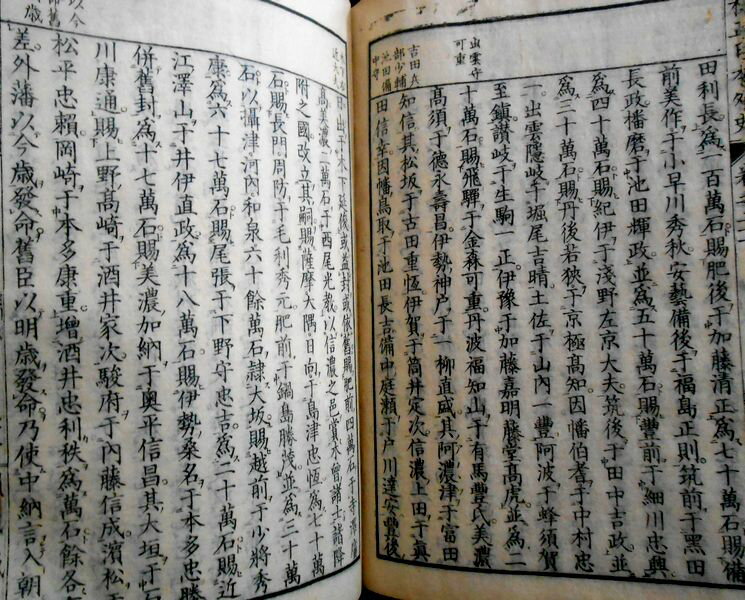 田利長爲一百萬石賜肥後于加藤清正爲七十萬石賜備
前美作于小早川秀秋安藝備後于福島正則筑前于黑田
長政播磨于池田輝政並爲五十萬石賜豐前于細川忠興
爲四十萬石賜紀伊于淺野左京大夫筑後于田中吉政並
爲三十萬石賜丹後若狹于京極高知因幡伯耆于中村忠
一出雲隱岐于堀尾吉晴土佐于山內一豐阿波于蜂須賀
至鎭讃岐于生駒一正伊豫于加藤嘉明藤堂高虎並爲二
十萬石賜飛驒于金森可重丹波福知山于有馬豐氏美濃
高須于德永壽昌伊勢神戶于一柳直盛其阿濃津于富田
知信其松坂于古田重恆伊賀于筒井定次信濃上田于眞
田信幸因幡鳥取于池田長吉備中庭瀬于戶川達安豐後
出雲守
可重
吉田兵
部少輔
池田備
中守
日出于木下延俊或益封或依舊賜肥前四萬石于寺澤廣
高美濃二萬石于西尾光敎以信濃之邑賞水曾諸士諸降
附之國改立其嗣賜薩摩大隅日向于島津忠恆爲七十萬
石賜長門周防于毛利秀元肥前于鍋島勝茂並爲三十萬
石以攝津河內和泉六十餘萬石隸大坂賜越前于少將秀
康爲六十七萬石賜尾張于下野守忠吉爲二十萬石賜近
江澤山于井伊直政爲十八萬石賜伊勢桑名于本多忠勝
併舊封爲十七萬石賜美濃加納于奧平信昌其大垣于石
川康通賜上野高崎于酒井家次駿府于內藤信成濱松于
松平忠賴岡崎于本多康重增酒井忠利秩爲萬石餘各有
差外藩以今歲發命舊臣以明歲發命乃使中納言入朝